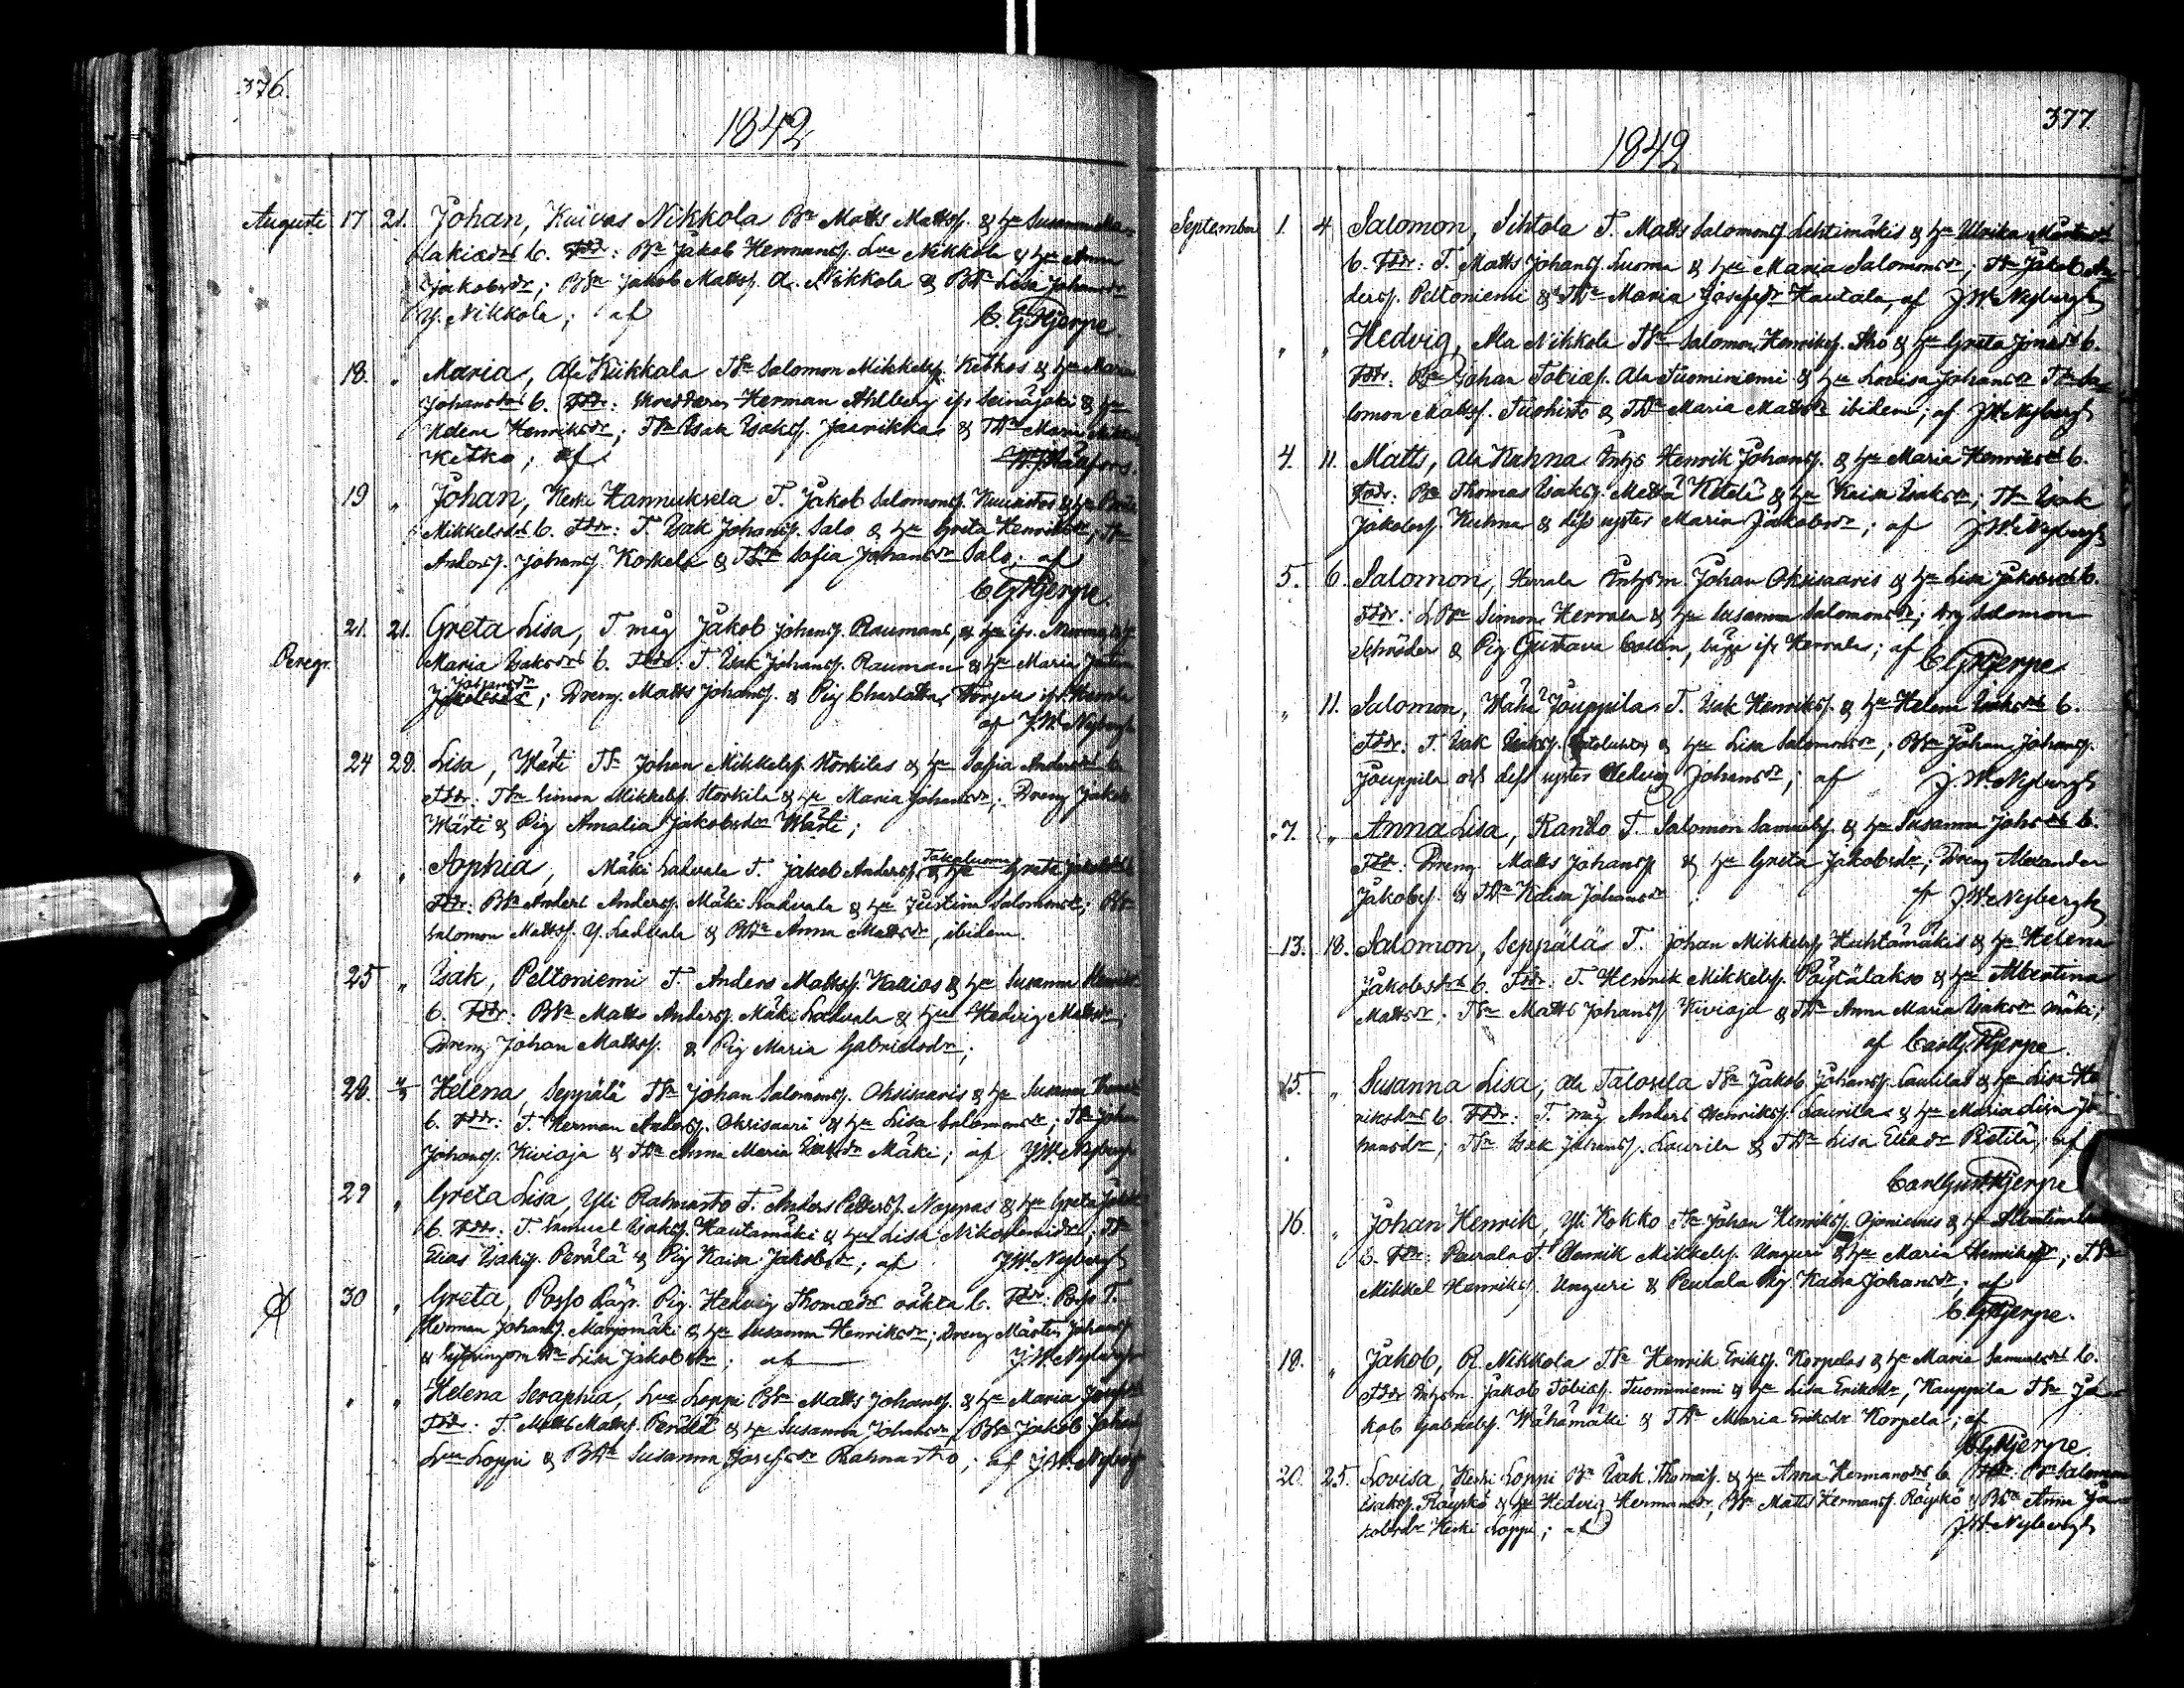 376.
1842
Augusti 17 21. Johan, Kuivas Nikkola Bn Matts Mattsf. & hu Susanna Ma-
lakiædrs b. Fddr: Bn Jakob Hermansf. Lua Nikkola & hu Anna
Jakobsdr; BSn Jakob Mattsf. A. Nikkola & BDr Lisa Johansdr
Y. Nikkola; af C. G. Hjerpe
18. " Maria, Ala Kiikkala TSn Salomon Mikkelsf. Ketkos & hu Maria
Johansdrs b. Fddr: Herman Ahlberg ifr Seinäjoki & hu
Helena Henriksdr; TSn Isak Isaksf. Jaarikka & TDr Maria
Ketko; af
19 " Johan, Keski Hannuksela T. Jakob Salomonsf. & hu
Mikkelsdrs b. Fddr: T. Isak Johansf. Salo & hu Greta Henriksdr; TSn
Andersf. Johansf. Koskela & TDr Sofia Johansdr Salo; af
C G Hjerpe.
Peregr. 21. 21. Greta Lisa, T. måg Jakob Johansf. Raumans, & hu ifr.
Maria Isaksdrs b. Fddr: T. Isak Johansf. Rauman & hu Maria
Johansdr; Dreng Matts Johansf. & Pig Charlotta ifr
af J. W. Nybergh
24 28. Lisa, Wärti TSn Johan Mikkelsf. Storkilas & hu Sofia Andersdrs b.
Fddr: TSn Simon Mikkelsf. Storkila & hu Maria Johansdr; Dreng Jakob
Wärti & Pig Amalia Jakobsdr Wärti;
" " Sophia, Mäki Ladvala T. Jakob Andersf. Takaluoma & hu Greta Jakobsdrs
Fddr: BSn Anders Andersf. Mäki Ladvala & hu Justina Salomonsdr; BSn
Salomon Mattsf. Y. Ladvala & BDr Anna Mattsdr, ibidem.
25 " Isak, Peltoniemi T. Anders Mattsf. Kallios & hu Susanna
b. Fddr: BSn Matts Andersf. Mäki Ladvala & hu Hedvig Mattsdr;
Dreng Johan Mattsf. & Pig Maria Gabrielsdr;
28. Helena, Seppälä TSn Johan Salomonsf. Oksisaaris & hu Susanna
b. Fddr: T. Herman Andersf. Oksisaari & hu Lisa Salomonsdr; TSn Johan
Johansf. Kiviaja & TDr Anna Maria Isaksdr Mäki; af J. W. Nybergh
29 " Greta Lisa, Yli Rahnasto T. Anders Pettersf. Noppas & hu Greta
b. Fddr: T. Samuel Isaksf. Hautamäki & hu Lisa Nikodemidr;
Elias Isaksf. Perälä & Pig Kaisa Jakobsdr; af J. W. Nybergh
30 " Greta, Posso Pig. Hedvig Thomædrs oäkta b. Fddr: Posso T.
Herman Johansf. Marjomäki & hu Susanna Henriksdr; Dreng Mårten Johansf.
& Lisa Jakobsdr; af J. W. Nybergh
" " Helena Seraphia, Lua Loppi BSn Matts Johansf. & hu Maria
Fddr: T. Matts Mattsf. Perälä & hu Susanna Johansdr; BSn Jakob Johansf.
Lua Loppi & BDr Susanna Josefsdr Rahnasto; af J. W. Nybergh
377.
1842
September 1. 4 Salomon, Sihtola T. Matts Salomonsf. Lehtimäkis & hu Ulrika Mårtensdrs
b. Fddr: T. Matts Johansf. Luoma & hu Maria Salomonsdr; TSn Jakob An-
dersf. Peltoniemi & TDr Maria Josefsdr Hautala, af J. W. Nybergh
" " Hedvig, Ala Nikkola TSn Salomon Henriksf. Aho & hu Greta Jonædrs b.
Fddr: Bn Johan Tobiæf. Ala Tuominiemi & hu Lovisa Johansdr TSn Sa-
lomon Mattsf. Tuohisto & TDr Maria Mattsdr ibidem; af J. W. Nybergh
4. 11. Matts, Ala Kuhna Inhys Henrik Johansf. & hu Maria Henriksdrs b.
Fddr: Bn Thomas Isaksf. Mettä Kitelä & hu Kaisa Isaksdr; TSn Isak
Jakobsf. Kuhna & dess syster Maria Jakobsdr; af J. W. Nybergh
5. 6. Salomon, Herrala Inhysm. Johan Oksisaaris & hu Lisa Jakobsdrs b.
Fddr: LBn Simon Herrala & hu Susanna Salomonsdr; Drg Salomon
Schröder & Pig Gustava Collin, bägge ifr Herrala; af C G Hjerpe
" 11. Salomon, Wähä Jouppila T. Isak Henriksf. & hu Helena Isaksdrs b.
Fddr: T. Isak Isaksf. & hu Lisa Salomonsdr; BSn Johan Johansf.
Jouppila och dess syster Hedvig Johansdr; af J. W. Nybergh
7. " Anna Lisa, Ranto T. Salomon Samuelsf. & hu Susanna Johsdrs b.
Fddr: Dreng Matts Johansf. & hu Greta Jakobsdr; Dreng Alexander
Jakobsf. & TDr Kaisa Johansdr af J. W. Nybergh
13. 18. Salomon, Seppälä T. Johan Mikkelsf. Huhtamäkis & hu Helena
Jakobsdrs b. Fddr: T. Henrik Mikkelsf. Pöytälakso & hu Albertina
Mattsdr; TSn Matts Johansf. Kiviaja & TDr Anna Maria Isaksdr Mäki;
af Carl G. Hjerpe.
15. " Susanna Lisa, Ala Talosela TSn Jakob Johansf. Laurilas & hu Lisa He-
niksdrs b. Fddr: T. måg Anders Henriksf. Laurila & hu Maria Lisa Jo-
hansdr; TSn Isak Johansf. Laurila & TDr Lisa Eliædr Pietilä; af
Carl Gust Hjerpe
16. " Johan Henrik, Yli Kokko TSn Johan Henriksf. Ojaniemis & hu Albertina
b. Fddr: Peurala T. Henrik Mikkelsf. Unguri & hu Maria Henriksdr; TSn
Mikkel Henriksf. Unguri & Peurala Pig. Kaisa Johansdr; af
C. G. Hjerpe.
18. " Jakob, A. Nikkola TSn Henrik Eriksf. Korpelas & hu Maria Samuelsdrs b.
Fddr Inhysm. Jakob Tobiæf. Tuominiemi & hu Lisa Eriksdr, Kauppila TSn Ja-
kob Gabrielsf. Wähämäki & TDr Maria Eriksdr Korpela; af
C G Hjerpe.
20. 25. Lovisa, Keski Loppi Bn Isak Thomæf. & hu Anna Hermansdrs b. Fddr: Bn Salomon
Isaksf. Röyskö & hu Hedvig Hermansdr, BSn Matts Hermansf. Röyskö & BDr Anna Ja-
kobsdr Keski Loppi; af J. W. Nybergh